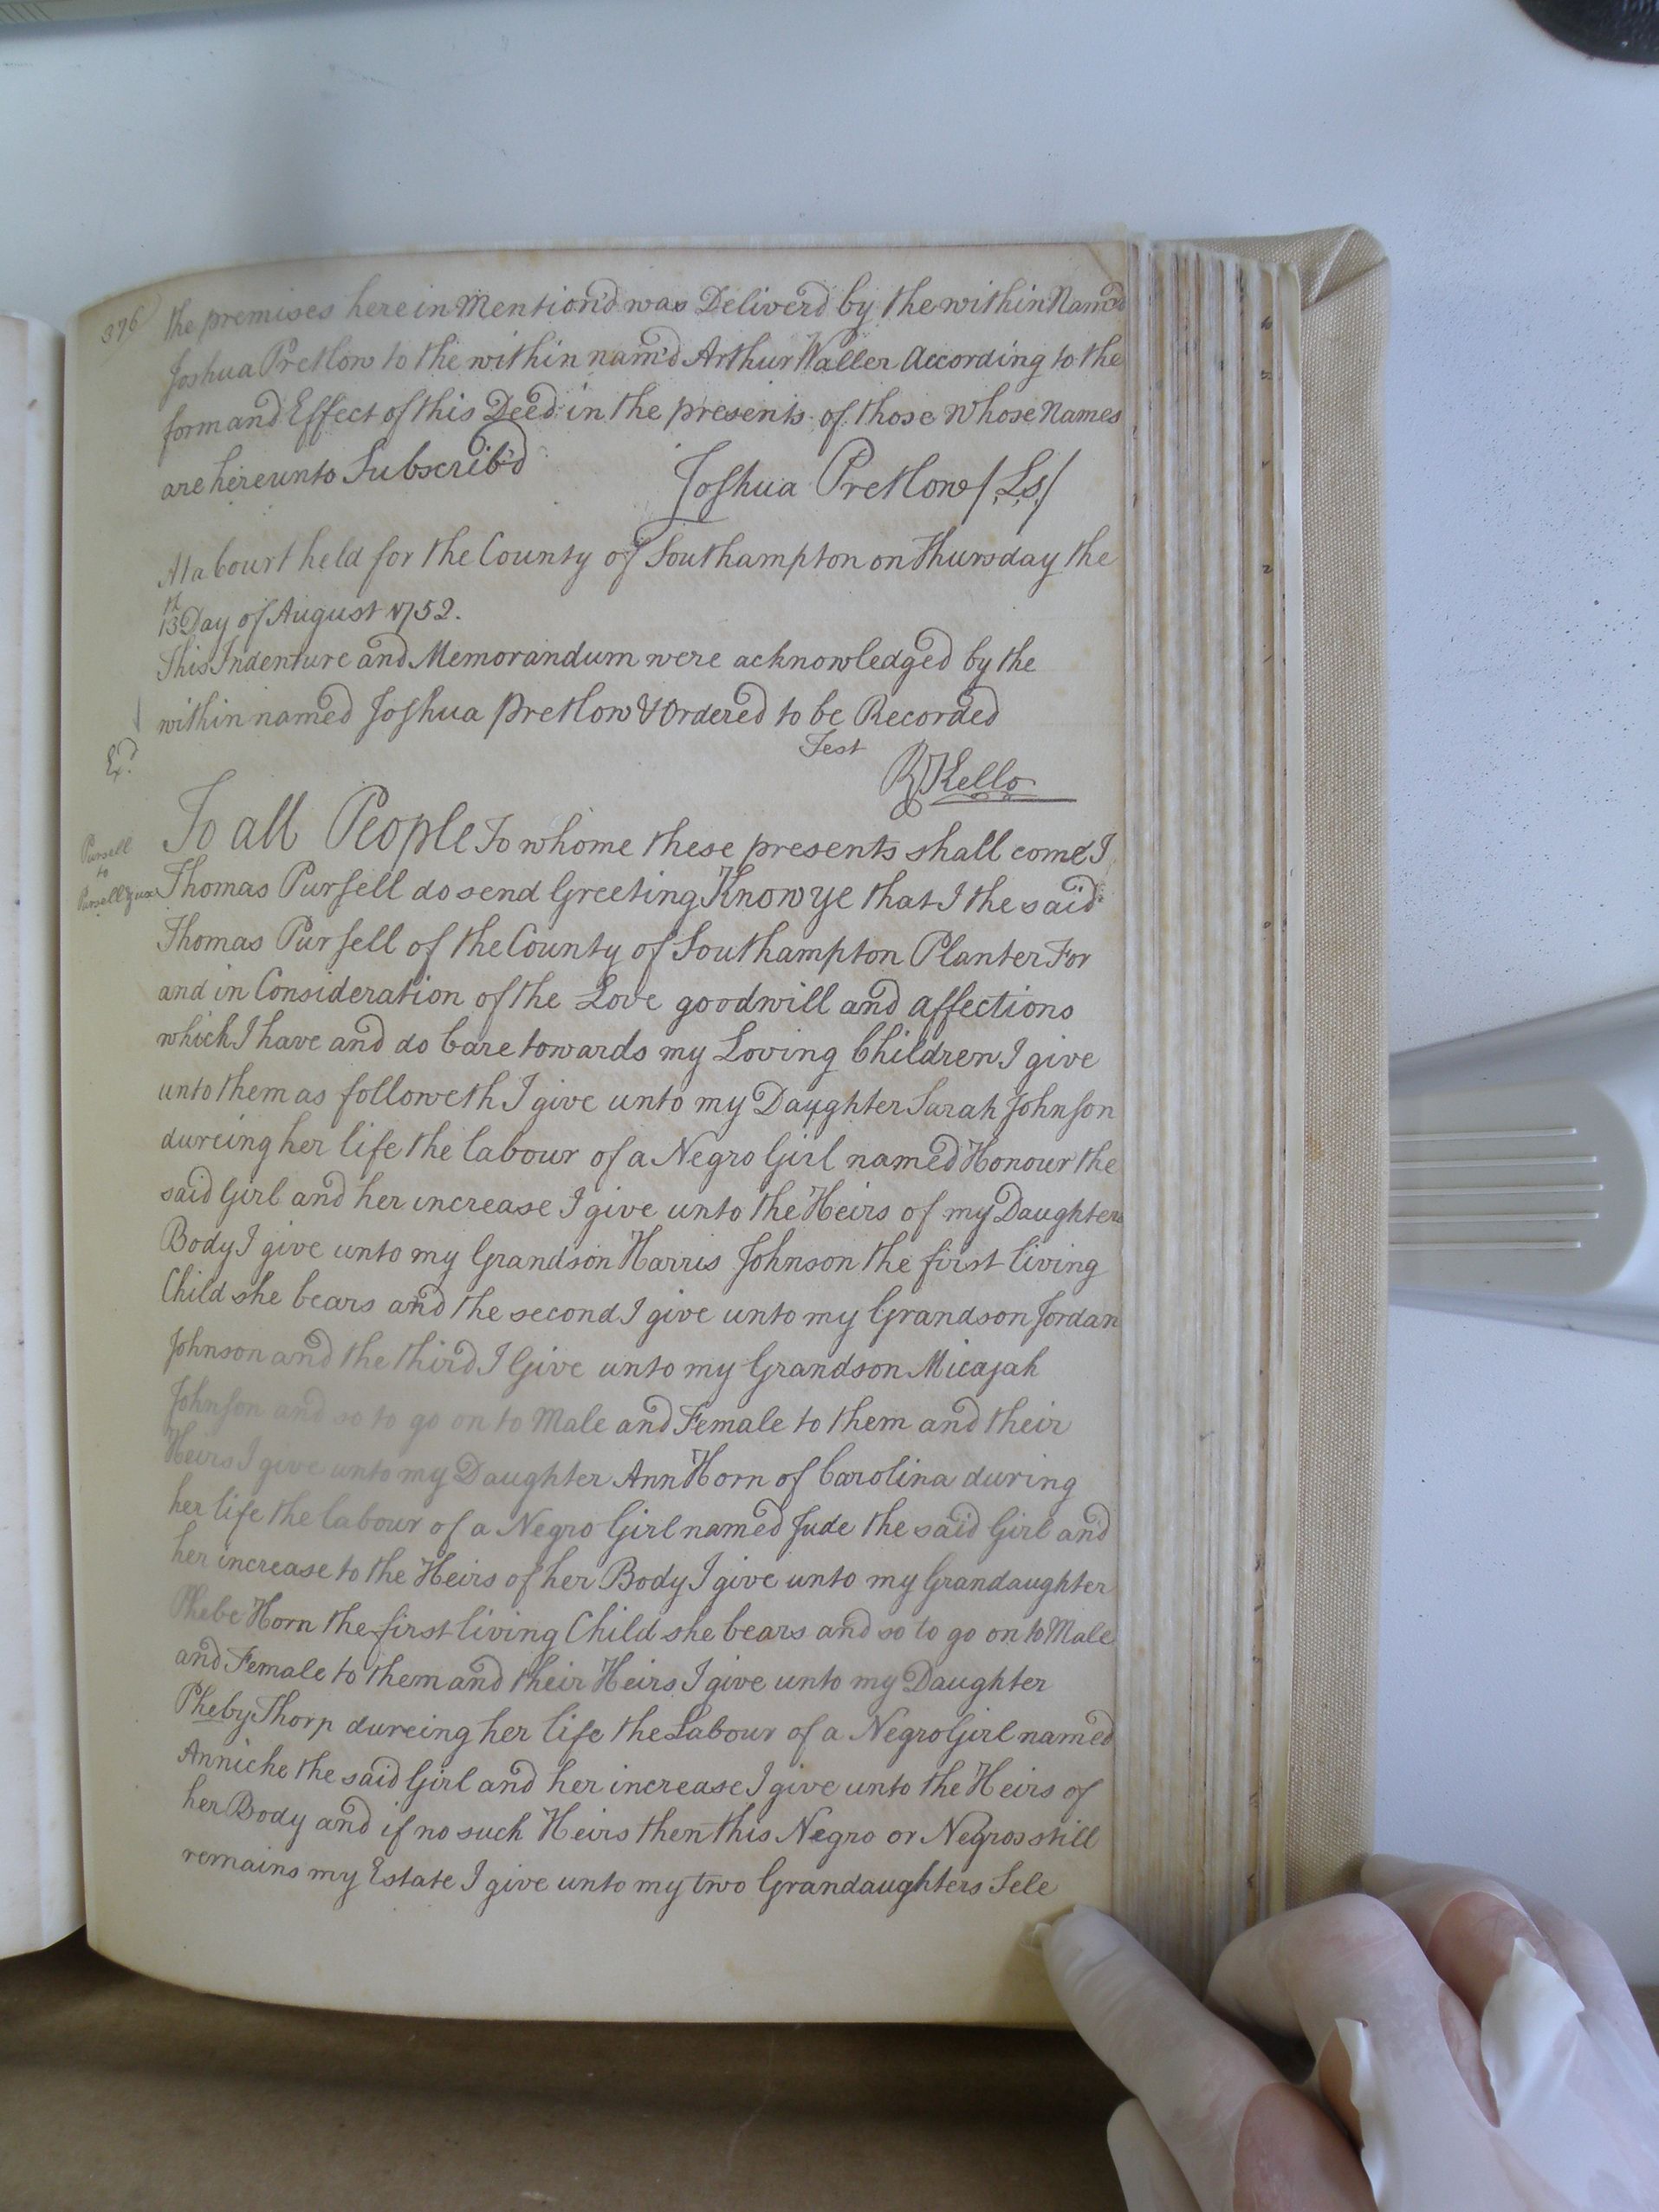 376
the premises herein Mention'd was Deliver'd by the within Nam'd
Joshua Pretlow to the within nam'd Arthur Waller According to the
form and Effect of this Deed in the presents of those whose Names
are hereunto Subscrib'd
Joshua Pretlow /L,s,/
At a Court held for the County of Southampton on Thursday the
13th Day of August 1752.
This Indenture and Memorandum were acknowledged by the
within named Joshua Pretlow & Ordered to be Recorded
Test
Ex.d
R Kello
To all People To whome these presents shall come I
Pursell
to
Pursell
Thomas Pursell do send Greeting Know ye that I the said
Thomas Pursell of the County of Southampton Planter For
and in Consideration of the Love goodwill and affections
which I have and do bare towards my Loving Children I give
unto them as followeth I give unto my Daughter Sarah Johnson
dureing her life the labour of a Negro Girl named Honour the
said Girl and her increase I give unto the Heirs of my Daughters
Body I give unto my Grandson Harris Johnson the first living
Child she bears and the second I give unto my Grandson Jordan
Johnson and the third I Give unto my Grandson Micajah
Johnson and so to go on to Male and Female to them and their
Heirs I give unto my Daughter Ann Horn of Carolina during
her life the labour of a Negro Girl named Jude the said Girl and
her increase to the Heirs of her Body I give unto my Grandaughter
Phebe Horn the first living Child she bears and so to go on to Male
and Female to them and their Heirs I give unto my Daughter
Pheby Thorp dureing her life the Labour of a Negro Girl named
Anniche the said Girl and her increase I give unto the Heirs of
her Body and if no such Heirs then this Negro or Negros still
remains my Estate I give unto my two Grandaughters Sele